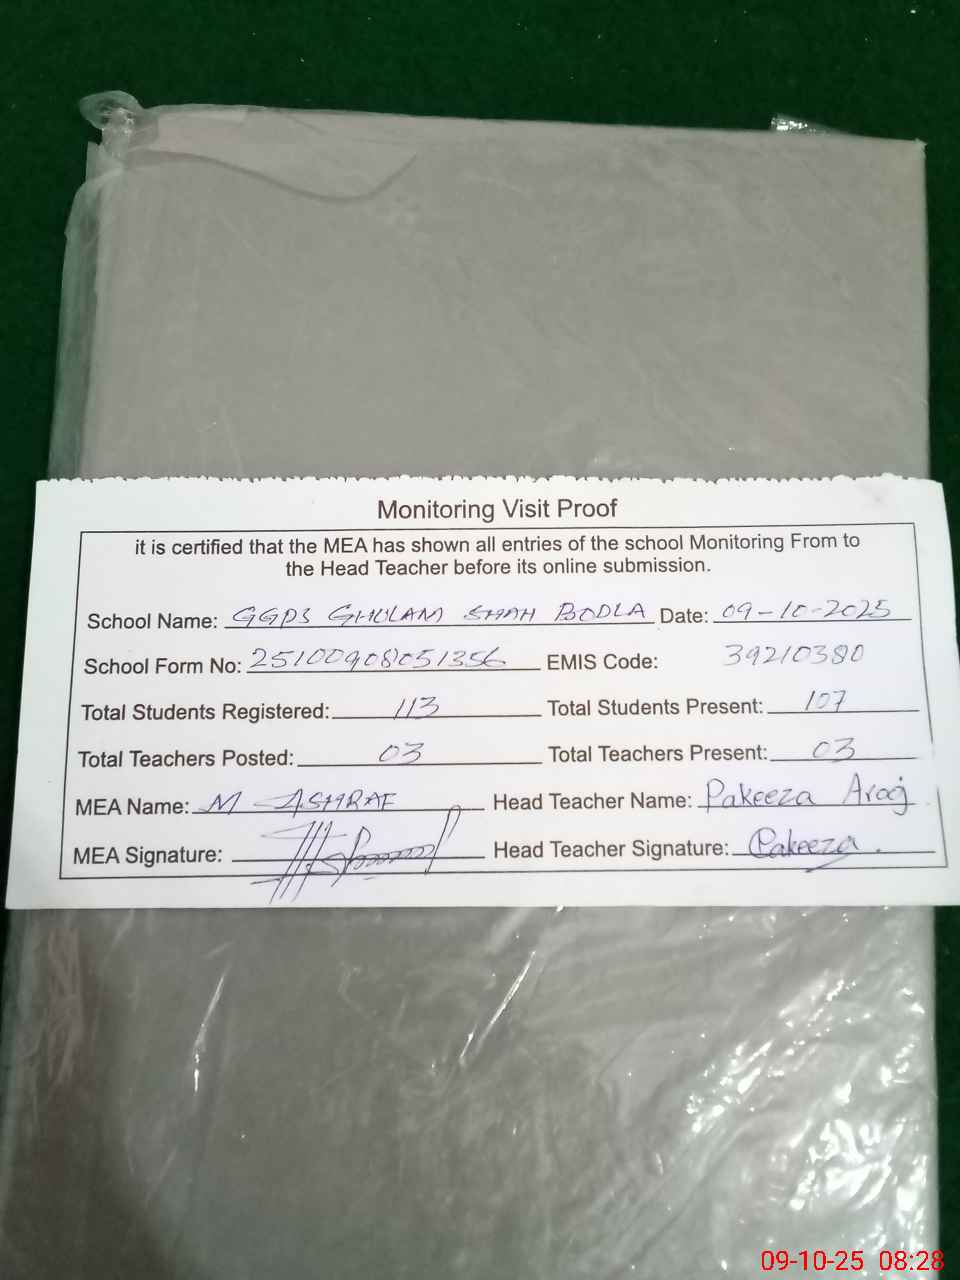 Monitoring Visit Proof
it is certified that the MEA has shown all entries of the school Monitoring From to
the Head Teacher before its online submission.
School Name: GGPS GHULAM SHAH BODLA Date: 09-10-2025
School Form No: 25100908051356 EMIS Code: 39210380
Total Students Registered: 113 Total Students Present: 107
Total Teachers Posted: 03 Total Teachers Present: 03
MEA Name: M ASHRAF Head Teacher Name: Pakeeza Arooj
MEA Signature: Head Teacher Signature: Pakeeza.
09-10-25 08:28